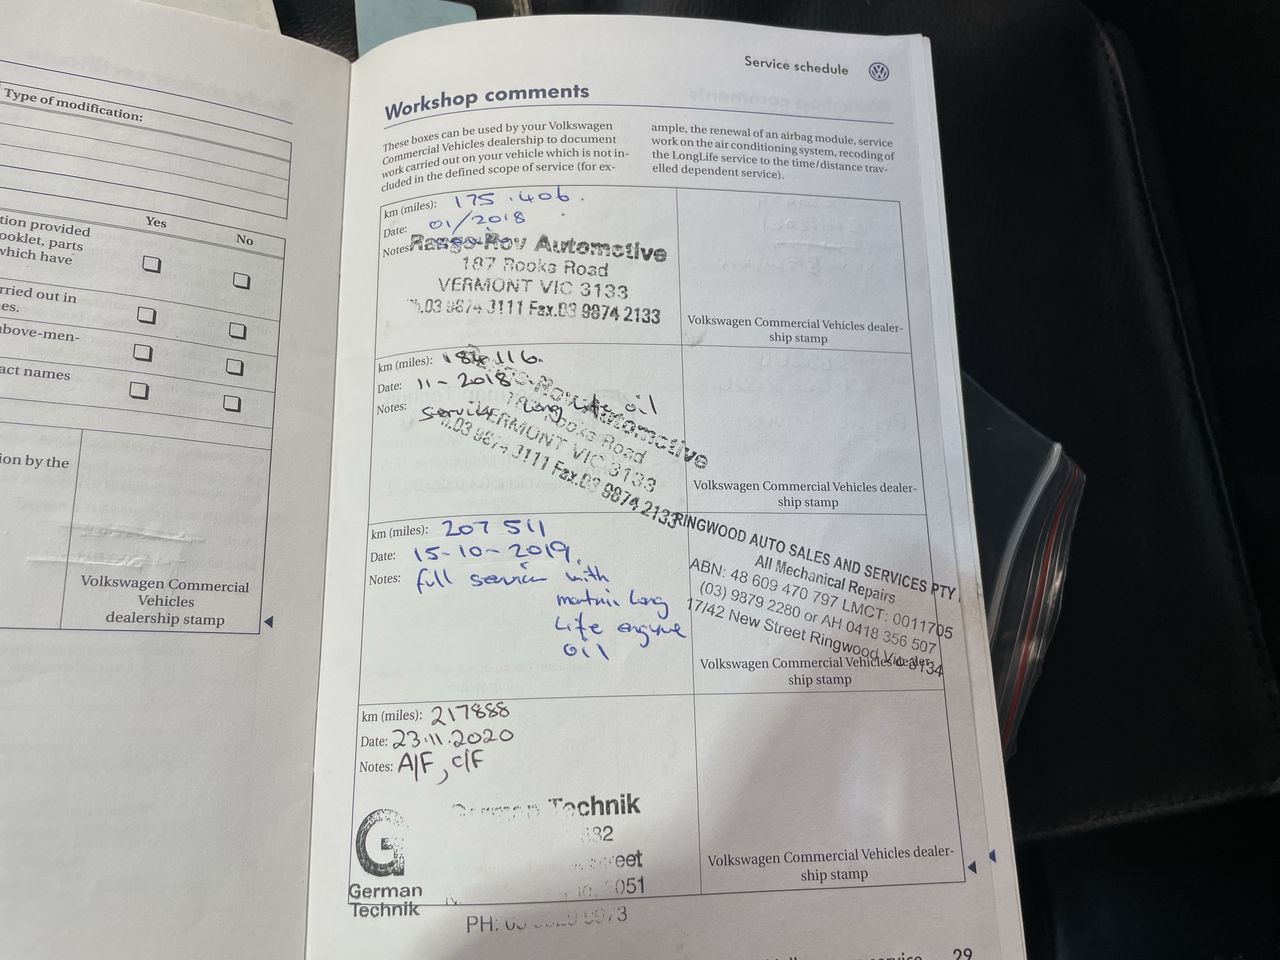 Type of modification:
Yes
No
tion provided
ooklet, parts
which have
rried out in
es.
above-men-
act names
ion by the
Volkswagen Commercial
Vehicles
dealership stamp
Service schedule
Workshop comments
These boxes can be used by your Volkswagen
Commercial Vehicles dealership to document
work carried out on your vehicle which is not in-
cluded in the defined scope of service (for ex-
ample, the renewal of an airbag module, service
work on the air conditioning system, recoding of
the LongLife service to the time/distance trav-
elled dependent service).
km (miles): 175.406.
Date: 01/2018
Notes:
Automotive
187 Rooks Road
VERMONT VIC 3133
.03 9874 3111 Fax.03 9874 2133
Volkswagen Commercial Vehicles dealer-
ship stamp
km (miles): 116.
Date: 11-2018
Notes: Long Life oil
service
Automotive
Rooks Road
VERMONT VIC 3133
.03 9874 3111 Fax.03 9874 2133
Volkswagen Commercial Vehicles dealer-
ship stamp
km (miles): 207 511
Date: 15-10-2019.
Notes: full service with
Long
Life engine
oil
RINGWOOD AUTO SALES AND SERVICES PTY
All Mechanical Repairs
ABN: 48 609 470 797 LMCT: 0011705
(03) 9879 2280 or AH 0418 356 507
17/42 New Street Ringwood Vic 3134
Volkswagen Commercial Vehicles dealer-
ship stamp
km (miles): 217888
Date: 23.11.2020
Notes: A/F, C/F
G
German
Technik
German Technik
PH:
Volkswagen Commercial Vehicles dealer-
ship stamp
29